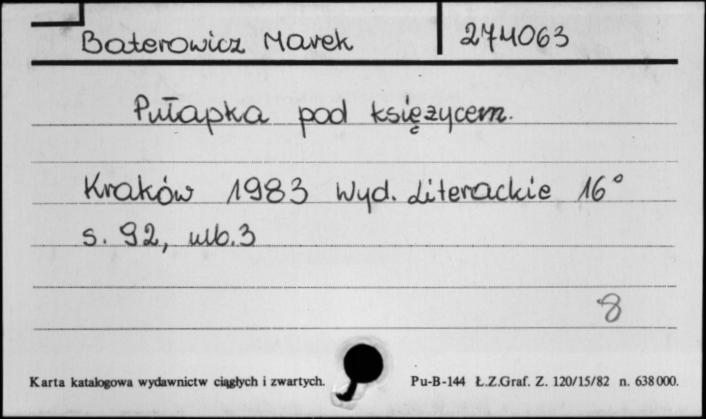 Baterowicz Marek 274063
Pułapka pod księżycem.
Kraków 1983 Wyd. Literackie 16°
s. 92, ulb. 3
8
Karta katalogowa wydawnictw ciągłych i zwartych. Pu-B-144 Ł.Z.Graf. Z. 120/15/82 n. 638000.